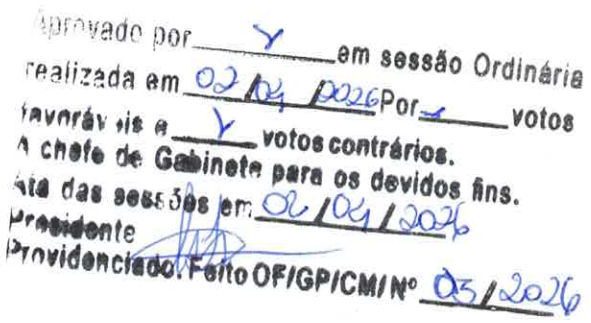 Aprovado por em sessão Ordinária
realizada em 02/04/2026 Por votos
favoráveis e votos contrários.
A chefe de Gabinete para os devidos fins.
Ata das sessões em 02/04/2026
Presidente
Providenciado. Feito OF/GP/CM/Nº 03/2026